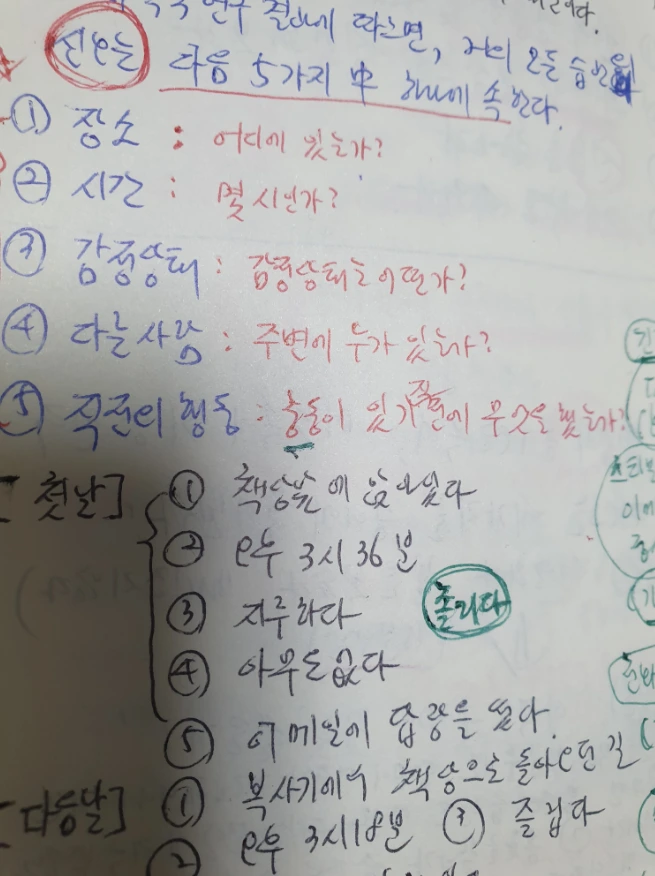 연구 결과에 따르면, 거의 모든 습관의
신호는 다음 5가지 中 하나에 속한다.
① 장소 : 어디에 있는가?
② 시간 : 몇 시인가?
③ 감정상태 : 감정상태는 어떤가?
④ 다른 사람 : 주변에 누가 있는가?
⑤ 직전의 행동 : 충동이 있기 직전에 무엇을 했는가?
[첫날] ① 책상앞에 앉아있다
② 오후 3시 36분
③ 지루하다 졸리다
④ 아무도 없다
⑤ 이메일에 답장을 썼다.
[다음날] ① 복사기에서 책상으로 돌아오던 길
② 오후 3시 18분 ③ 즐겁다